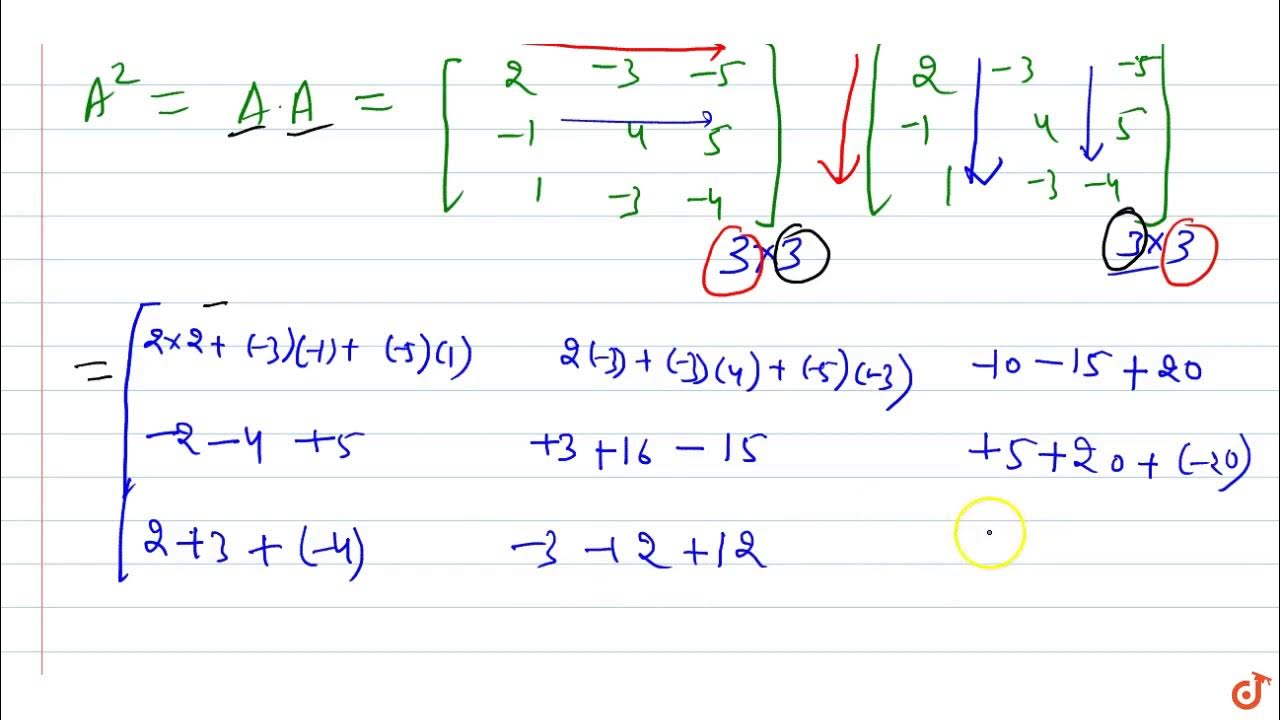 2 -3 -5 2 -3 -5
A² = A.A =
-1 4 5 -1 4 5
1 -3 -4 1 -3 -4
3×3 3×3
= 2×2+ (-3)(-1)+ (-5)(1) 2(-3)+(-3)(4)+(-5)(-3) -10-15+20
-2-4+5 +3+16-15 +5+20+(-20)
2+3+(-4) -3-12+12